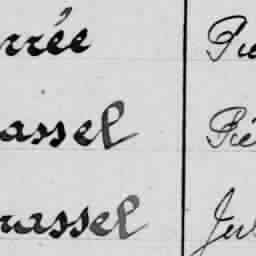 rrée Pie
assel Pié
rassel Jul